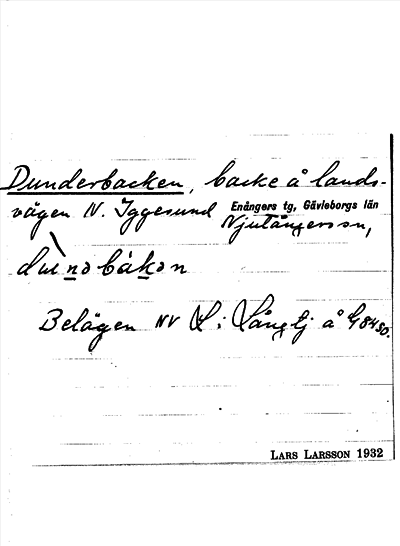 Dunderbacken, backe å lands-
vägen N. Iggesund Enångers tg, Gävleborgs län
Njutångers sn,
Belägen NV L: Långtj å G 84 SO.
LARS LARSSON 1932